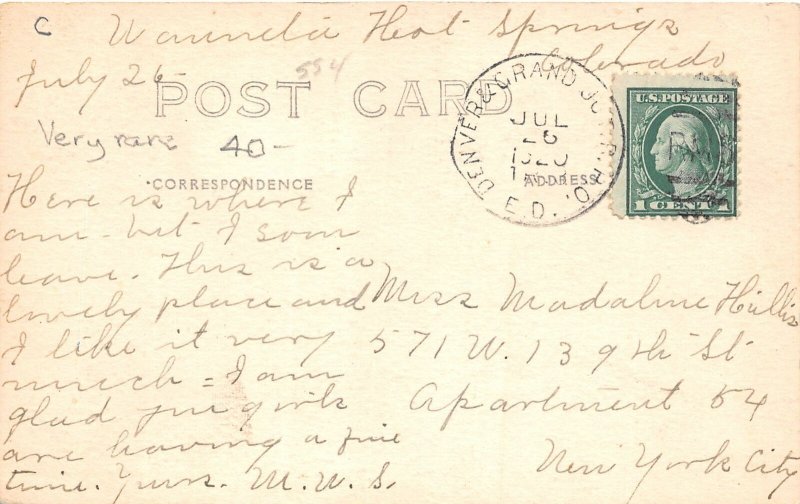 C
Waunita Hot Springs
Colorado
July 26
554
POST CARD
Very rare 40-
CORRESPONDENCE
ADDRESS
DENVER & GRAND JUNC. R.P.O.
JUL
26
1920
E.D.
U.S. POSTAGE
1 CENT 1
Here is where I
am - but I soon
leave. This is a
lovely place and
I like it very
much = I am
glad you girls
are having a fine
time. Yours. M.W.S.
Miss Madaline Hullis
571 W. 139 th St
Apartment 54
New York City